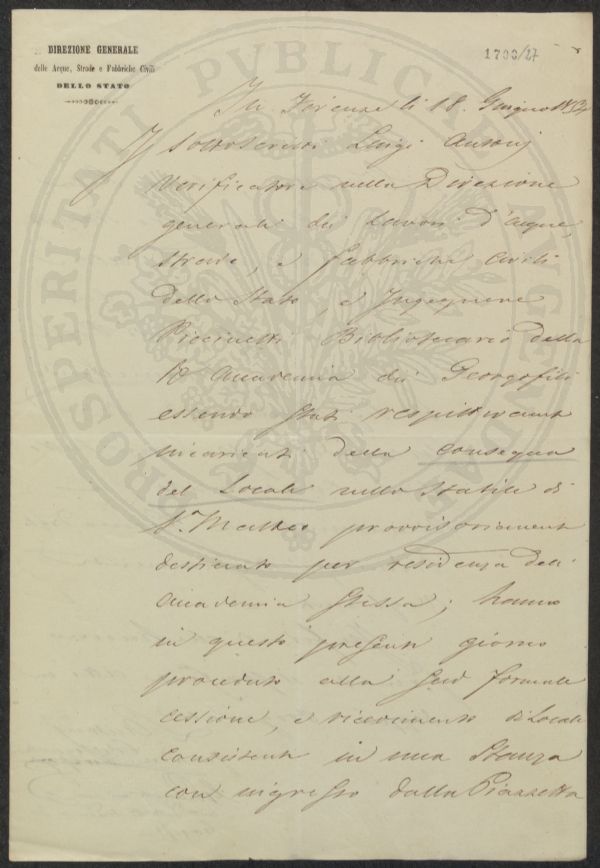 DIREZIONE GENERALE
delle Acque, Strade e Fabbriche Civili
DELLO STATO
1700/27
In Firenze li 18. Giugno
I sottoscritti Luigi Antonj
Verificatore nella Direzione
generale dei Lavori d'acque,
strade, e fabbriche civili
dello Stato, e Ingegnere
Bibliotecario della
R Accademia dei Georgofili
essendo stati respettivamente
incaricati della consegna
del Locale nello stabile di
S. Matteo provvisoriamente
destinato per residenza dell'
Accademia stessa; hanno
in questo presente giorno
proceduto alla formale
cessione, e ricevimento di Locale
consistente in una Stanza
con ingresso dalla Piazzetta
PROSPERITATI PUBLICAE AUGENDAE